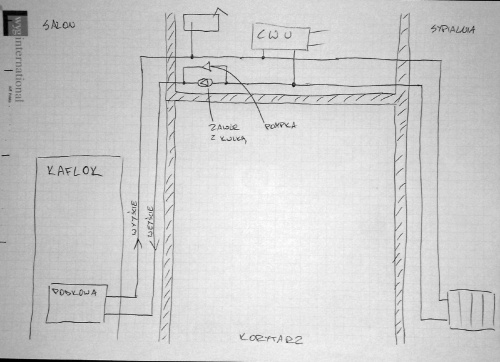 wyg international
SALON
SYPIALNIA
CWU
ZAWÓR
Z KULKĄ
POMPKA
KAFLOK
WYJŚCIE
WEJŚCIE
PODKOWA
KORYTARZ